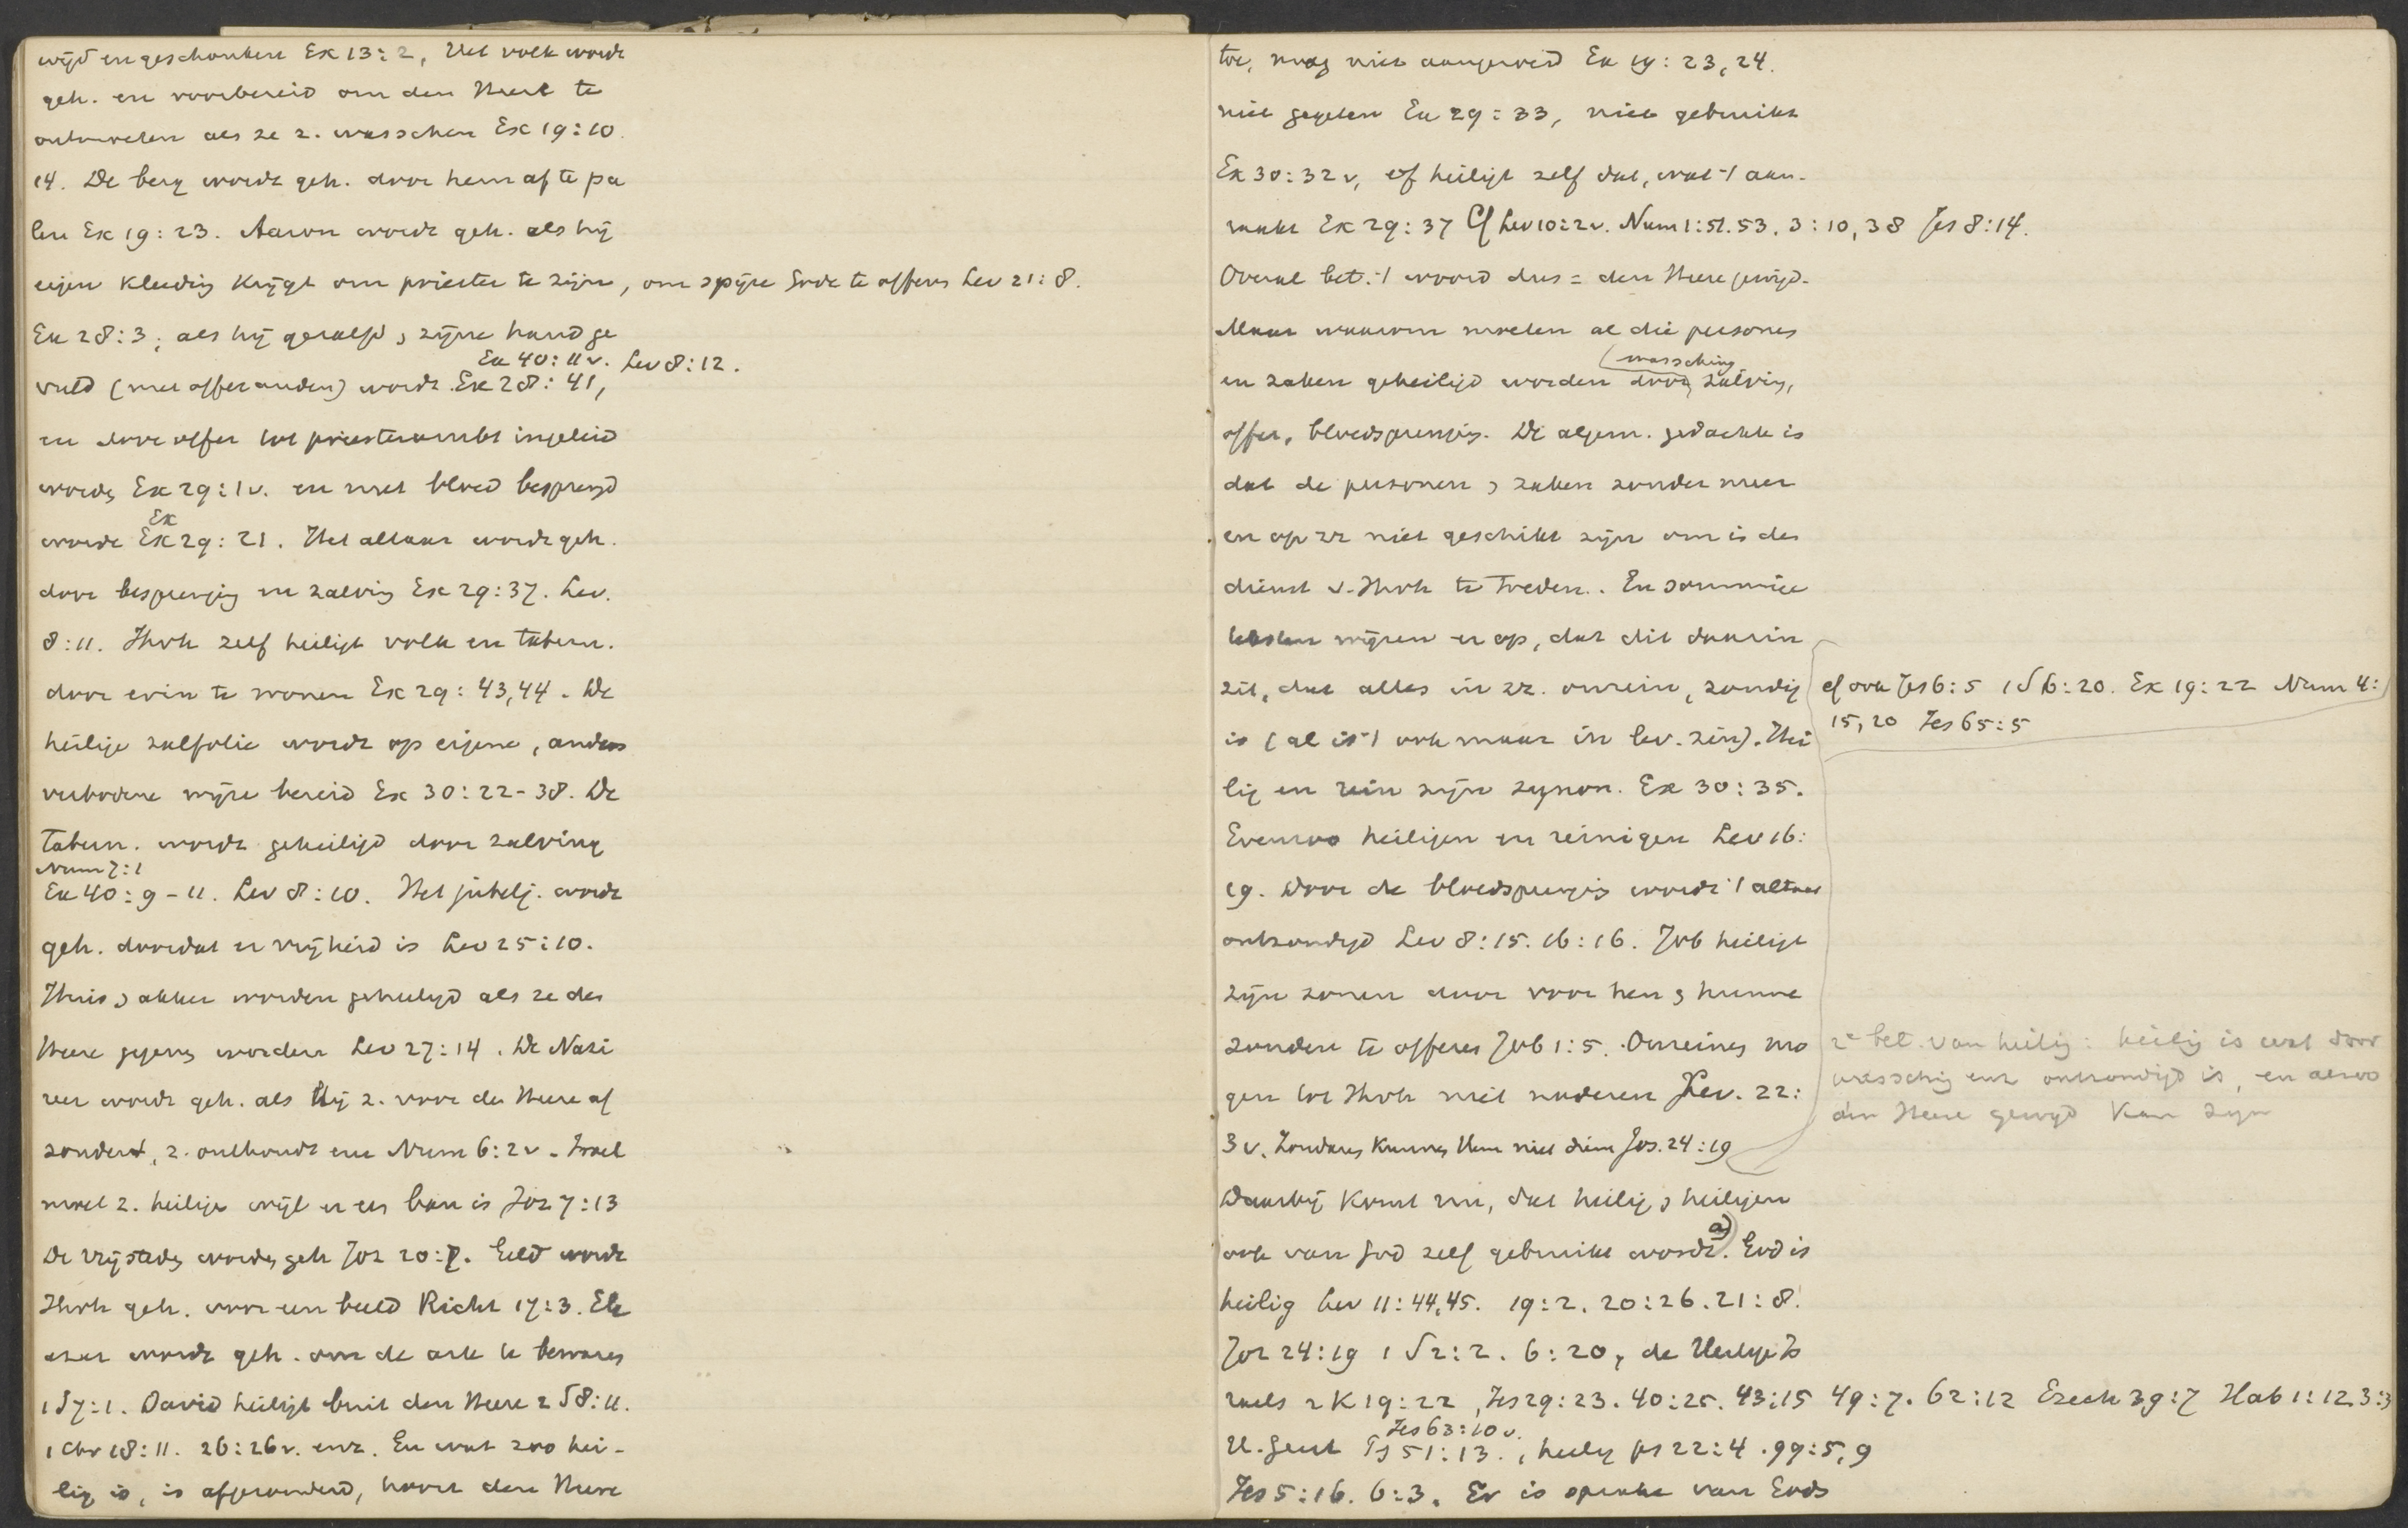 wijd en geschonken Ex 13:2, Het volk wordt
geh. en voorbereid om den Heere te
ontmoeten als ze z. wasschen Ex 19:10.
14. De berg wordt geh. door hem af te pa
len Ex 19:23. Aaron wordt geh. als hij
eigen kleeding krijgt om priester te zijn, om spijze Gode te offeren Lev 21:8.
Ex 28:3; als hij gezalfd, zijne hand ge
Ex 40:11v. Lev 8:12.
vuld (met offeranden) wordt Ex 28:41,
en door offer tot priesterambt ingeleid
wordt Ex 29:1v. en met bloed besprengd
Ex
wordt Ex 29:21. Het altaar wordt geh.
door besprenging en zalving Ex 29:37. Lev.
8:11. Jhvh zelf heiligt volk en tabern.
door erin te wonen Ex 29:43,44. De
heilige zalfolie wordt op eigene, anders
verbodene wijze bereid Ex 30:22-38. De
Tabern. wordt geheiligd door zalving
Num 7:1
Ex 40:9-11. Lev 8:10. Het jubelj. wordt
geh. doordat er vrijheid is Lev 25:10.
Huis, akker worden geheiligd als ze den
Heere gegeven worden Lev 27:14. De Nazi
reer wordt geh. als hij z. voor den Heere af
zondert, z. onthoudt enz Num 6:2v. Israel
moet z. heiligen wijl er een ban is Joz 7:13
De vrijsteden worden geh Joz 20:7. Geld wordt
Jhvh geh. voor een beeld Richt 17:3. Ele
azar wordt geh. om de ark te bewaren
1 S 7:1. David heiligt buit den Heere 2 S 8:11.
1 Chr 18:11. 26:26v. enz. En wat zoo hei-
lig is, is afgezonderd, hoort den Heere
toe, mag niet aangeroerd Ex 19:23,24.
niet gegeten Ex 29:33, niet gebruikt
Ex 30:32v, of heiligt zelf dat, wat 't aan-
raakt Ex 29:37 Cf Lev 10:2v. Num 1:51.53. 3:10,38 Jes 8:14.
Overal bet. 't woord dus = den Heere gewijd.
Maar waarom moeten al die personen
(wassching
en zaken geheiligd worden door zalving,
offer, bloedsprenging. De algem. gedachte is
dat de personen, zaken zonder meer
en op zz niet geschikt zijn om in den
dienst v. Jhvh te treden. En sommige
teksten wijzen er op, dat dit daarin
zit, dat alles in zz. onrein, zondig
is (al is 't ook maar in lev. zin). Hei
lig en rein zijn synon. Ex 30:35.
Evenzoo heiligen en reinigen Lev 16:
19. Door de bloedsprenging wordt 't altaar
ontzondigd Lev 8:15. 16:16. Job heiligt
zijn zonen door voor hen, hunne
zonden te offeren Job 1:5. Onreinen mo
gen tot Jhvh niet naderen Lev. 22:
3v. Zondaren kunnen Hem niet dienen Jos. 24:19
Daarbij komt nu, dat heilig, heiligen
a)
ook van God zelf gebruikt wordt. God is
heilig Lev 11:44,45. 19:2. 20:26. 21:8.
Joz 24:19 1 S 2:2. 6:20, de Heilige Is
raels 2 K 19:22, Jes 29:23. 40:25. 43:15 49:7. 62:12 Ezech 39:7 Hab 1:12. 3:3
Jes 63:10v.
H. Geest Ps 51:13., heilig ps 22:4. 99:5,9
Jes 5:16. 6:3. Er is sprake van Gods
cf ook Jes 6:5 1 S 6:20. Ex 19:22 Num 4:
15,20 Jes 65:5
2e bet. van heilig: heilig is wat door
wassching enz ontzondigd is, en alzoo
den Heere gewijd kan zijn